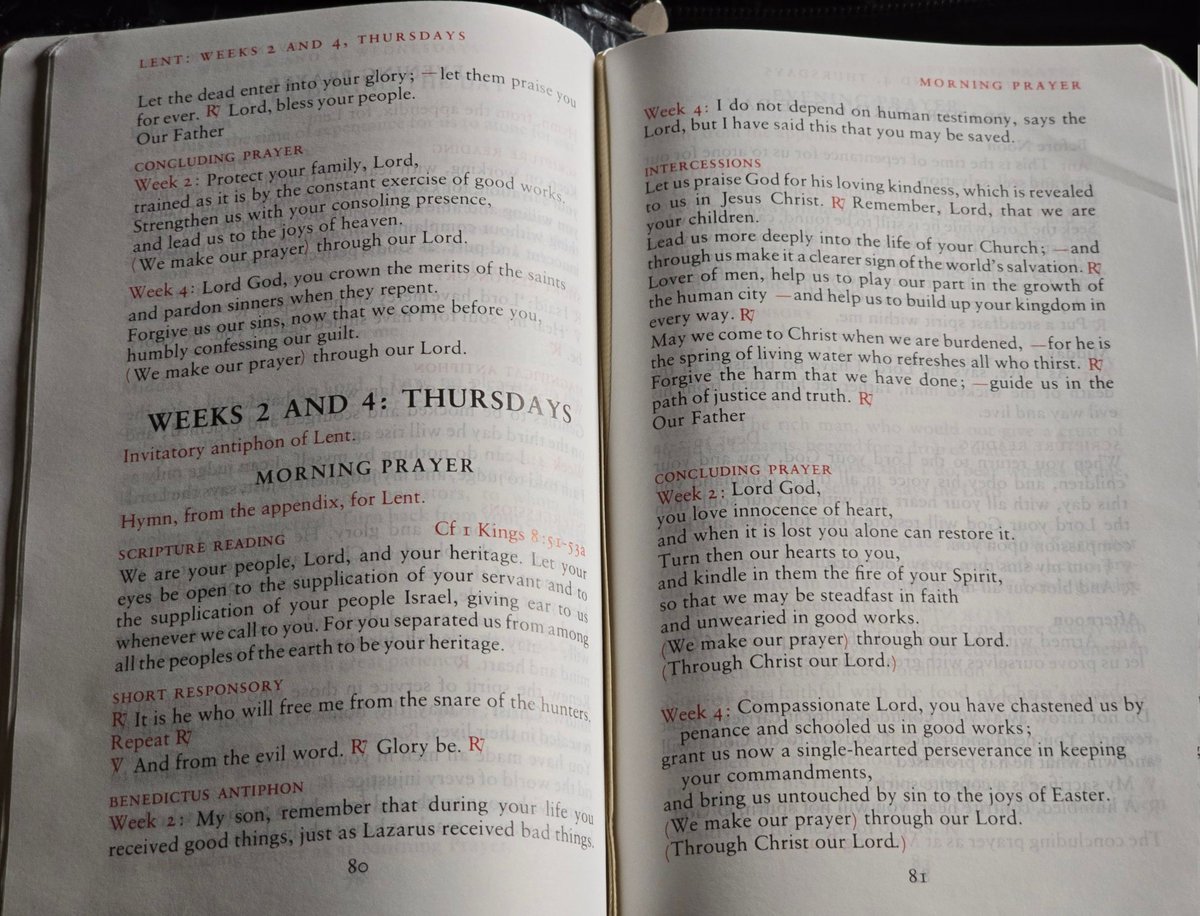 LENT: WEEKS 2 AND 4, THURSDAYS
Let the dead enter into your glory; —let them praise you
for ever. ℟ Lord, bless your people.
Our Father
CONCLUDING PRAYER
Week 2: Protect your family, Lord,
trained as it is by the constant exercise of good works.
Strengthen us with your consoling presence,
and lead us to the joys of heaven.
(We make our prayer) through our Lord.
Week 4: Lord God, you crown the merits of the saints
and pardon sinners when they repent.
Forgive us our sins, now that we come before you,
humbly confessing our guilt.
(We make our prayer) through our Lord.
WEEKS 2 AND 4: THURSDAYS
Invitatory antiphon of Lent.
MORNING PRAYER
Hymn, from the appendix, for Lent.
SCRIPTURE READING Cf 1 Kings 8:51-53a
We are your people, Lord, and your heritage. Let your
eyes be open to the supplication of your servant and to
the supplication of your people Israel, giving ear to us
whenever we call to you. For you separated us from among
all the peoples of the earth to be your heritage.
SHORT RESPONSORY
℟ It is he who will free me from the snare of the hunters.
Repeat ℟
℣ And from the evil word. ℟ Glory be. ℟
BENEDICTUS ANTIPHON
Week 2: My son, remember that during your life you
received good things, just as Lazarus received bad things.
80
MORNING PRAYER
Week 4: I do not depend on human testimony, says the
Lord, but I have said this that you may be saved.
INTERCESSIONS
Let us praise God for his loving kindness, which is revealed
to us in Jesus Christ. ℟ Remember, Lord, that we are
your children.
Lead us more deeply into the life of your Church; —and
through us make it a clearer sign of the world's salvation. ℟
Lover of men, help us to play our part in the growth of
the human city —and help us to build up your kingdom in
every way. ℟
May we come to Christ when we are burdened, —for he is
the spring of living water who refreshes all who thirst. ℟
Forgive the harm that we have done; —guide us in the
path of justice and truth. ℟
Our Father
CONCLUDING PRAYER
Week 2: Lord God,
you love innocence of heart,
and when it is lost you alone can restore it.
Turn then our hearts to you,
and kindle in them the fire of your Spirit,
so that we may be steadfast in faith
and unwearied in good works.
(We make our prayer) through our Lord.
(Through Christ our Lord.)
Week 4: Compassionate Lord, you have chastened us by
penance and schooled us in good works;
grant us now a single-hearted perseverance in keeping
your commandments,
and bring us untouched by sin to the joys of Easter.
(We make our prayer) through our Lord.
(Through Christ our Lord.)
81